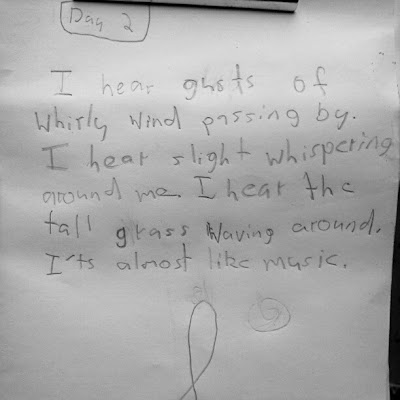 Day 2
I hear gusts of
whirly wind passing by.
I hear slight whispering
around me. I hear the
tall grass waving around.
I'ts almost like music.